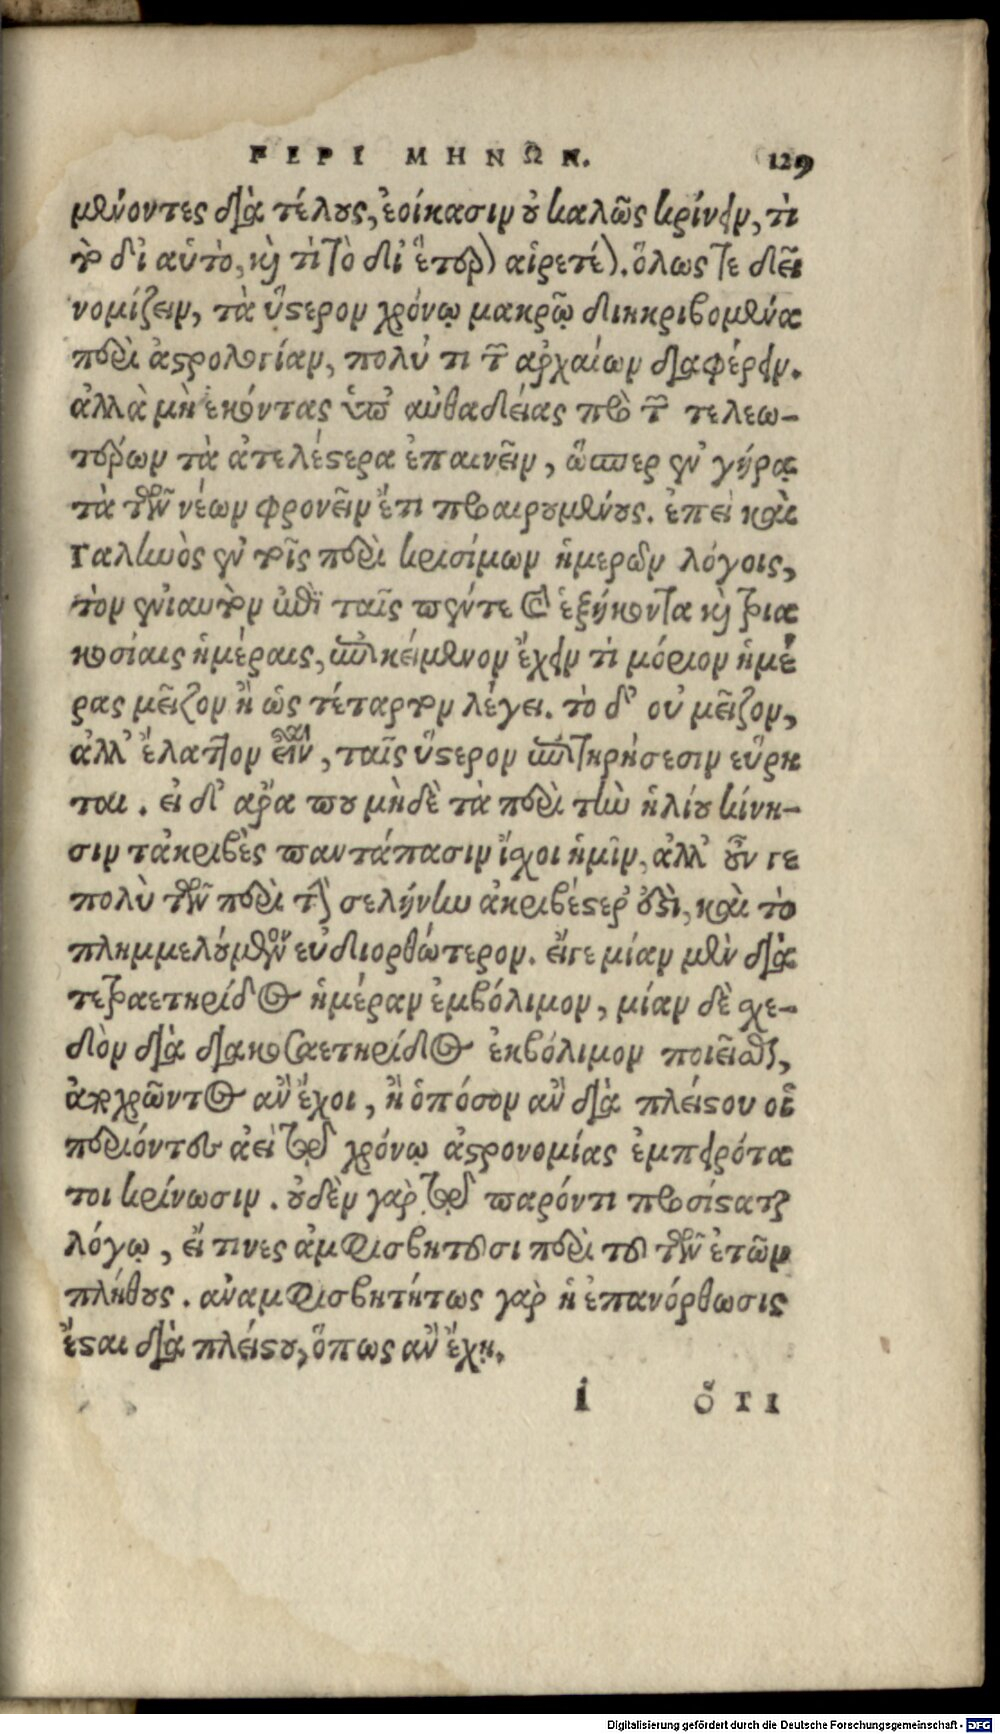 ΠΕΡΙ ΜΗΝΩΝ. 129
μένοντες διὰ τέλους, ἐοίκασιν οὐ καλῶς κρίνειν, τὶ
τὸ δι' αὑτὸ, καὶ τὶ τὸ δι' ἕτερον αἱρετέον. ὅλως τε δεῖ
νομίζειν, τὰ ὕστερον χρόνῳ μακρῷ διηκριβομένα
περὶ ἀστρολογίαν, πολύ τι τῶν ἀρχαίων διαφέρειν.
ἀλλὰ μὴ ἑκόντας ὑπ' αὐθαδείας πρὸ τῶν τελεω-
τέρων τὰ ἀτελέστερα ἐπαινεῖν, ὥσπερ ἐν γήρᾳ
τὰ τῶν νέων φρονεῖν ἔτι προαιρουμένους. ἐπεὶ καὶ
Γαληνὸς ἐν τοῖς περὶ κρισίμων ἡμερῶν λόγοις,
τὸν ἐνιαυτὸν ἐπὶ ταῖς πέντε καὶ ἑξήκοντα καὶ τρια
κοσίαις ἡμέραις, ὑποκείμενον ἔχειν τὶ μόριον ἡμέ
ρας μεῖζον ἢ ὡς τέταρτον λέγει. τὸ δ' οὐ μεῖζον,
ἀλλ' ἔλαττον εἶναι, ταῖς ὕστερον ἐπιτηρήσεσιν εὕρη
ται. εἰ δ' ἄρα που μηδὲ τὰ περὶ τὴν ἡλίου κίνη-
σιν τἀκριβὲς παντάπασιν ἴσχοι ἡμῖν, ἀλλ' οὖν γε
πολὺ τῶν περὶ τὴν σελήνην ἀκριβέστερόν ἐστι, καὶ τὸ
πλημμελούμενον εὐδιορθώτερον. εἴγε μίαν μὲν διὰ
τετραετηρίδος ἡμέραν ἐμβόλιμον, μίαν δὲ σχε-
δὸν διὰ διακοσαετηρίδος ἐκβόλιμον ποιεῖσθαι,
ἀρχρῶντος ἂν ἔχοι, ἢ ὁπόσον ἂν διὰ πλείστου οἱ
περιόντες ἀεὶ τῷ χρόνῳ ἀστρονομίας ἐμπειρότα
τοι κρίνωσιν. οὐδὲν γὰρ τῷ παρόντι προσίσταται
λόγῳ, εἴ τινες ἀμφισβητοῦσι περὶ τοῦ τῶν ἐτῶν
πλήθους. ἀναμφισβητήτως γὰρ ἡ ἐπανόρθωσις
ἔσται διὰ πλείστου, ὅπως ἂν ἔχῃ.
i ὅτι
Digitalisierung gefördert durch die Deutsche Forschungsgemeinschaft - DFG